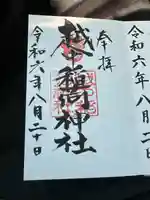 令和六年八月
奉拝
越稲荷神社
令和六年八月二十日